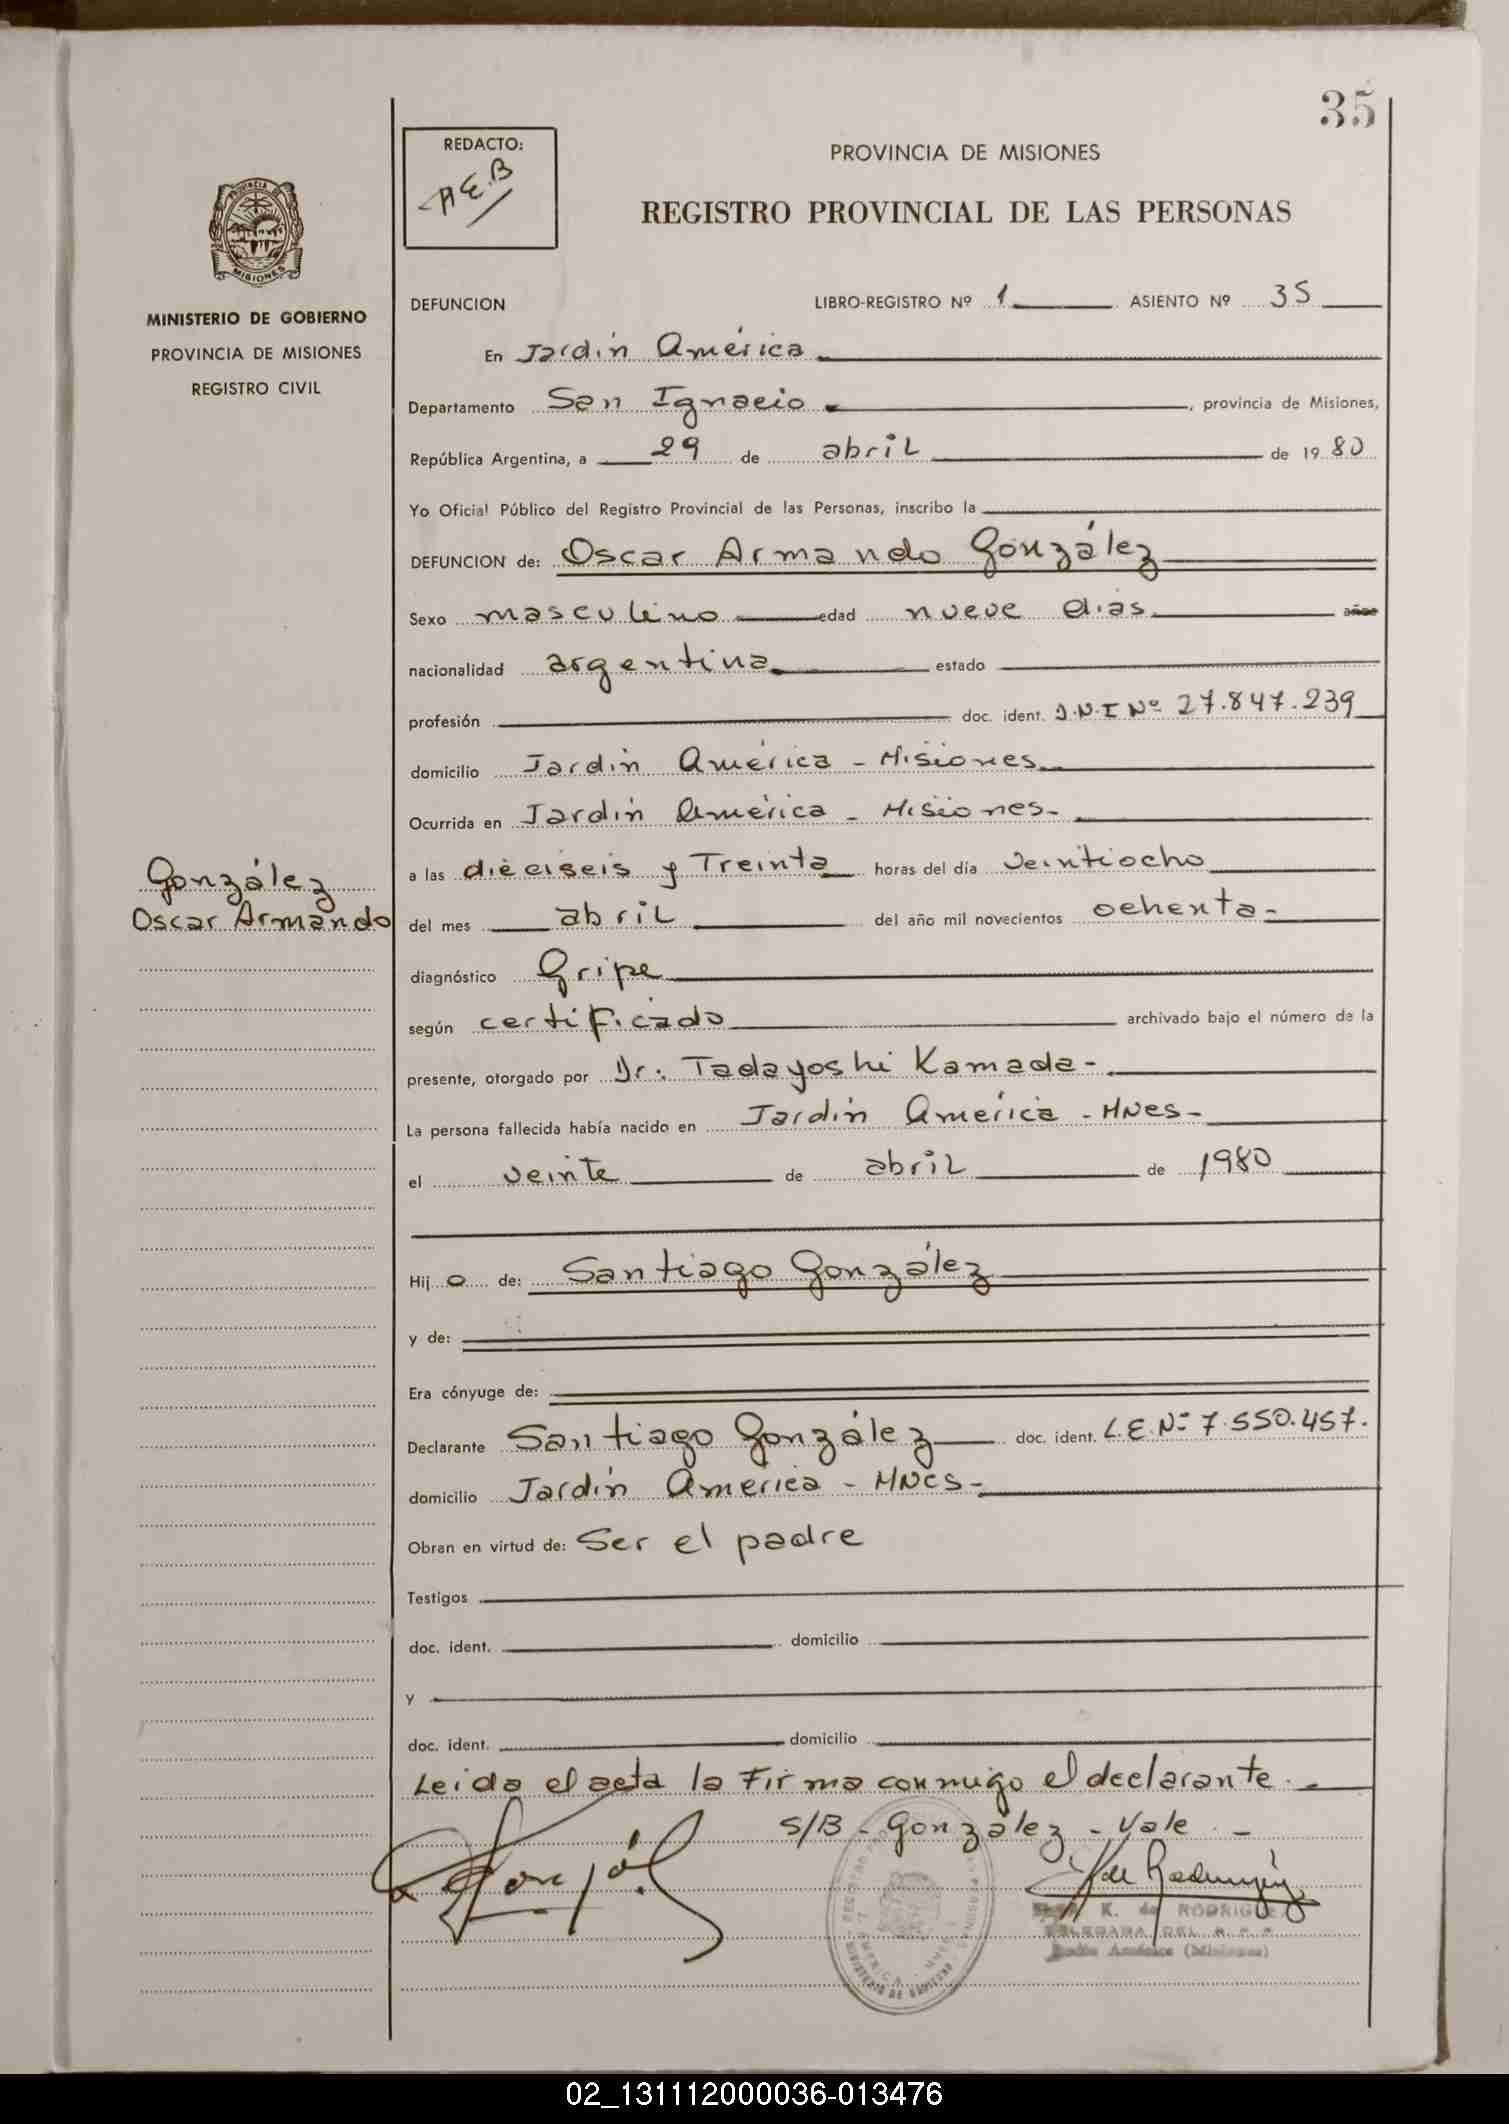 35
REDACTO:
A.E.B
PROVINCIA DE MISIONES
REGISTRO PROVINCIAL DE LAS PERSONAS
PROVINCIA DE
MISIONES
MINISTERIO DE GOBIERNO
PROVINCIA DE MISIONES
REGISTRO CIVIL
DEFUNCION LIBRO-REGISTRO Nº 1 ASIENTO Nº 35
En Jardín América
Departamento San Ignacio, provincia de Misiones,
República Argentina, a 29 de abril de 1980
Yo Oficial Público del Registro Provincial de las Personas, inscribo la
DEFUNCION de: Oscar Armando González
Sexo masculino edad nueve dias años
nacionalidad argentina estado
profesión doc. ident. D.N.I Nº 27.847.239
domicilio Jardín América - Misiones
Ocurrida en Jardín América - Misiones-
González
Oscar Armando
a las dieciseis y Treinta horas del día veintiocho
del mes abril del año mil novecientos ochenta-
diagnóstico Gripe
según certificado archivado bajo el número de la
presente, otorgado por Dr. Tadayoshi Kamada-
La persona fallecida había nacido en Jardín América - MNes-
el veinte de abril de 1980
Hij o de: Santiago González
y de:
Era cónyuge de:
Declarante Santiago González doc. ident. L.E.Nº 7.550.457.
domicilio Jardín America - MNes-
Obran en virtud de: Ser el padre
Testigos
doc. ident. domicilio
y
doc. ident. domicilio
Leida el acta la Firma conmigo el declarante.-
S/B - González - Vale.-
K. de RODRIGUEZ
DELEGADA DEL R.P.P.
Jardín América (Misiones)
02_131112000036-013476